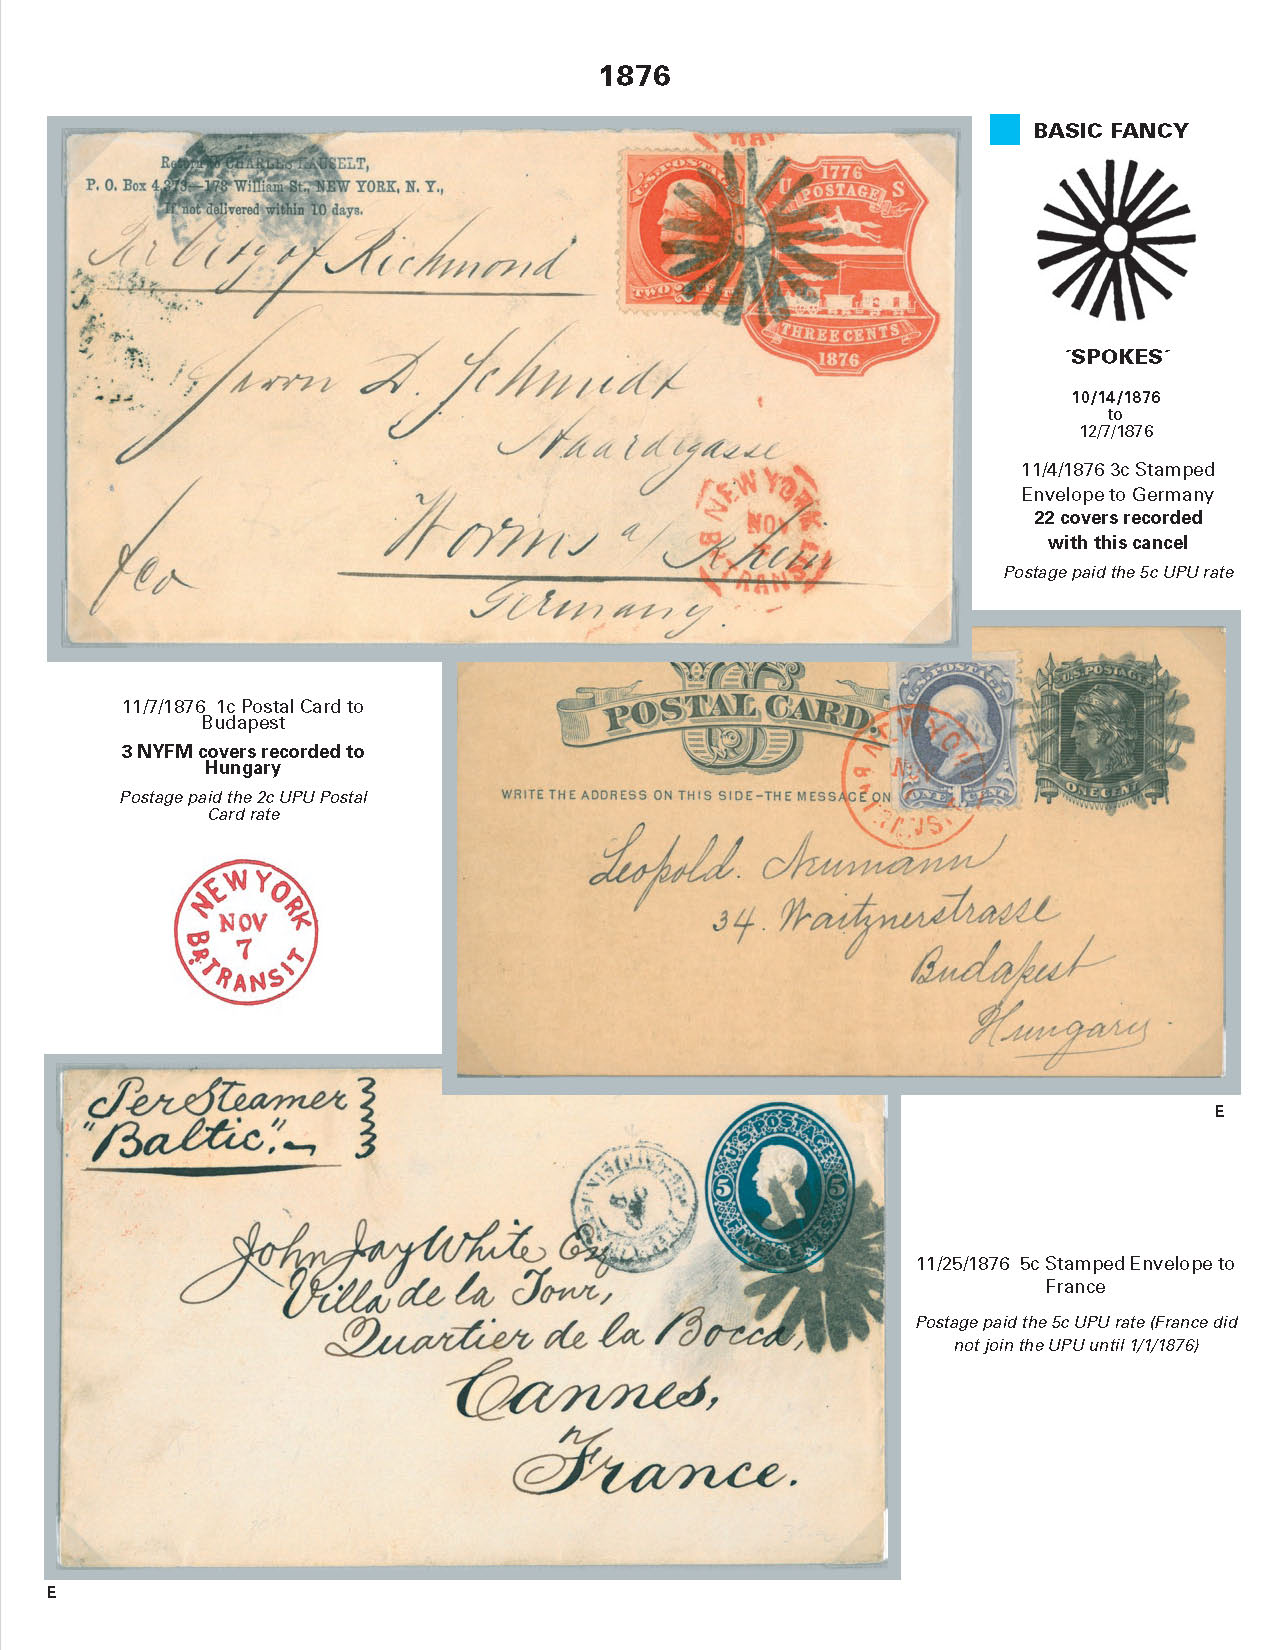 1876
Return to CHARLES HAUSELT,
P. O. Box 4,373—178 William St., NEW YORK, N. Y.,
If not delivered within 10 days.
Per City of Richmond
U.S. POSTAGE
TWO
1776
U S
POSTAGE
THREE CENTS
1876
Herrn D. Schmidt
Haardtgasse
Worms a/ Rhein
Germany.
fco
NEW YORK
NOV
BR. TRANSIT
BASIC FANCY
´SPOKES´
10/14/1876
to
12/7/1876
11/4/1876 3c Stamped
Envelope to Germany
22 covers recorded
with this cancel
Postage paid the 5c UPU rate
11/7/1876 1c Postal Card to
Budapest
3 NYFM covers recorded to
Hungary
Postage paid the 2c UPU Postal
Card rate
NEW YORK
NOV
7
BR. TRANSIT
POSTAL CARD.
WRITE THE ADDRESS ON THIS SIDE-THE MESSAGE ON
U.S. POSTAGE
ONE CENT
U.S. POSTAGE
ONE CENT
NEW YORK
BR. TRANSIT
Leopold. Neumann
34. Waitznerstrasse
Budapest
Hungary.
E
Per Steamer
"Baltic".
U.S. POSTAGE
5 5
FIVE CENTS
John Jay White Esq
Villa de la Tour,
Quartier de la Bocca,
Cannes,
France.
11/25/1876 5c Stamped Envelope to
France
Postage paid the 5c UPU rate (France did
not join the UPU until 1/1/1876)
E